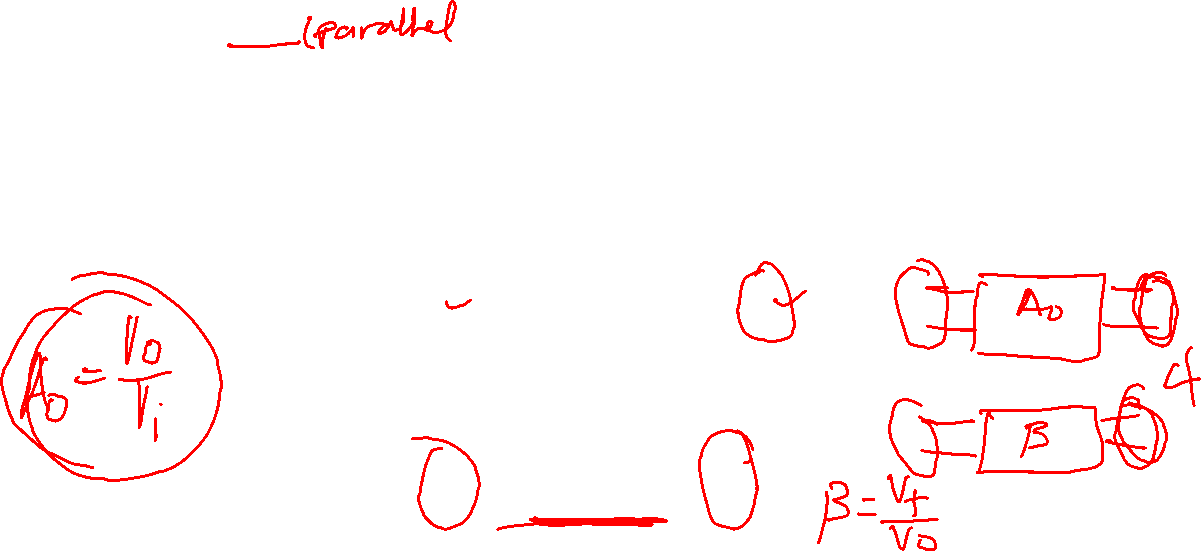 (parallel
A₀ = V₀/Vᵢ
A₀
4
β
β = V_f/V₀